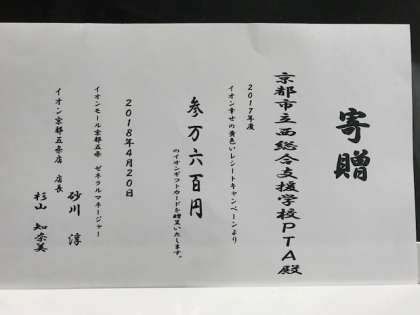 寄贈
京都市立西総合支援学校PTA殿
2017年度
イオン幸せの黄色いレシートキャンペーンより
参万六百円
のイオンギフトカードを贈呈いたします。
2018年4月20日
イオンモール京都五条 ゼネラルマネージャー
砂川 淳
イオン京都五条店 店長
杉山 知奈美